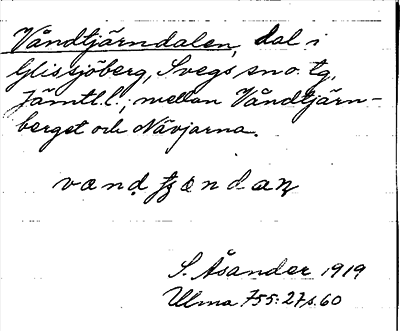 Våndtjärndalen, dal i
Glissjöberg, Svegs sn o. tg,
Jämtl. l., mellan Våndtjärn-
berget och Nävjarna.
S. Åsander 1919
Ulma 755:27 s. 60